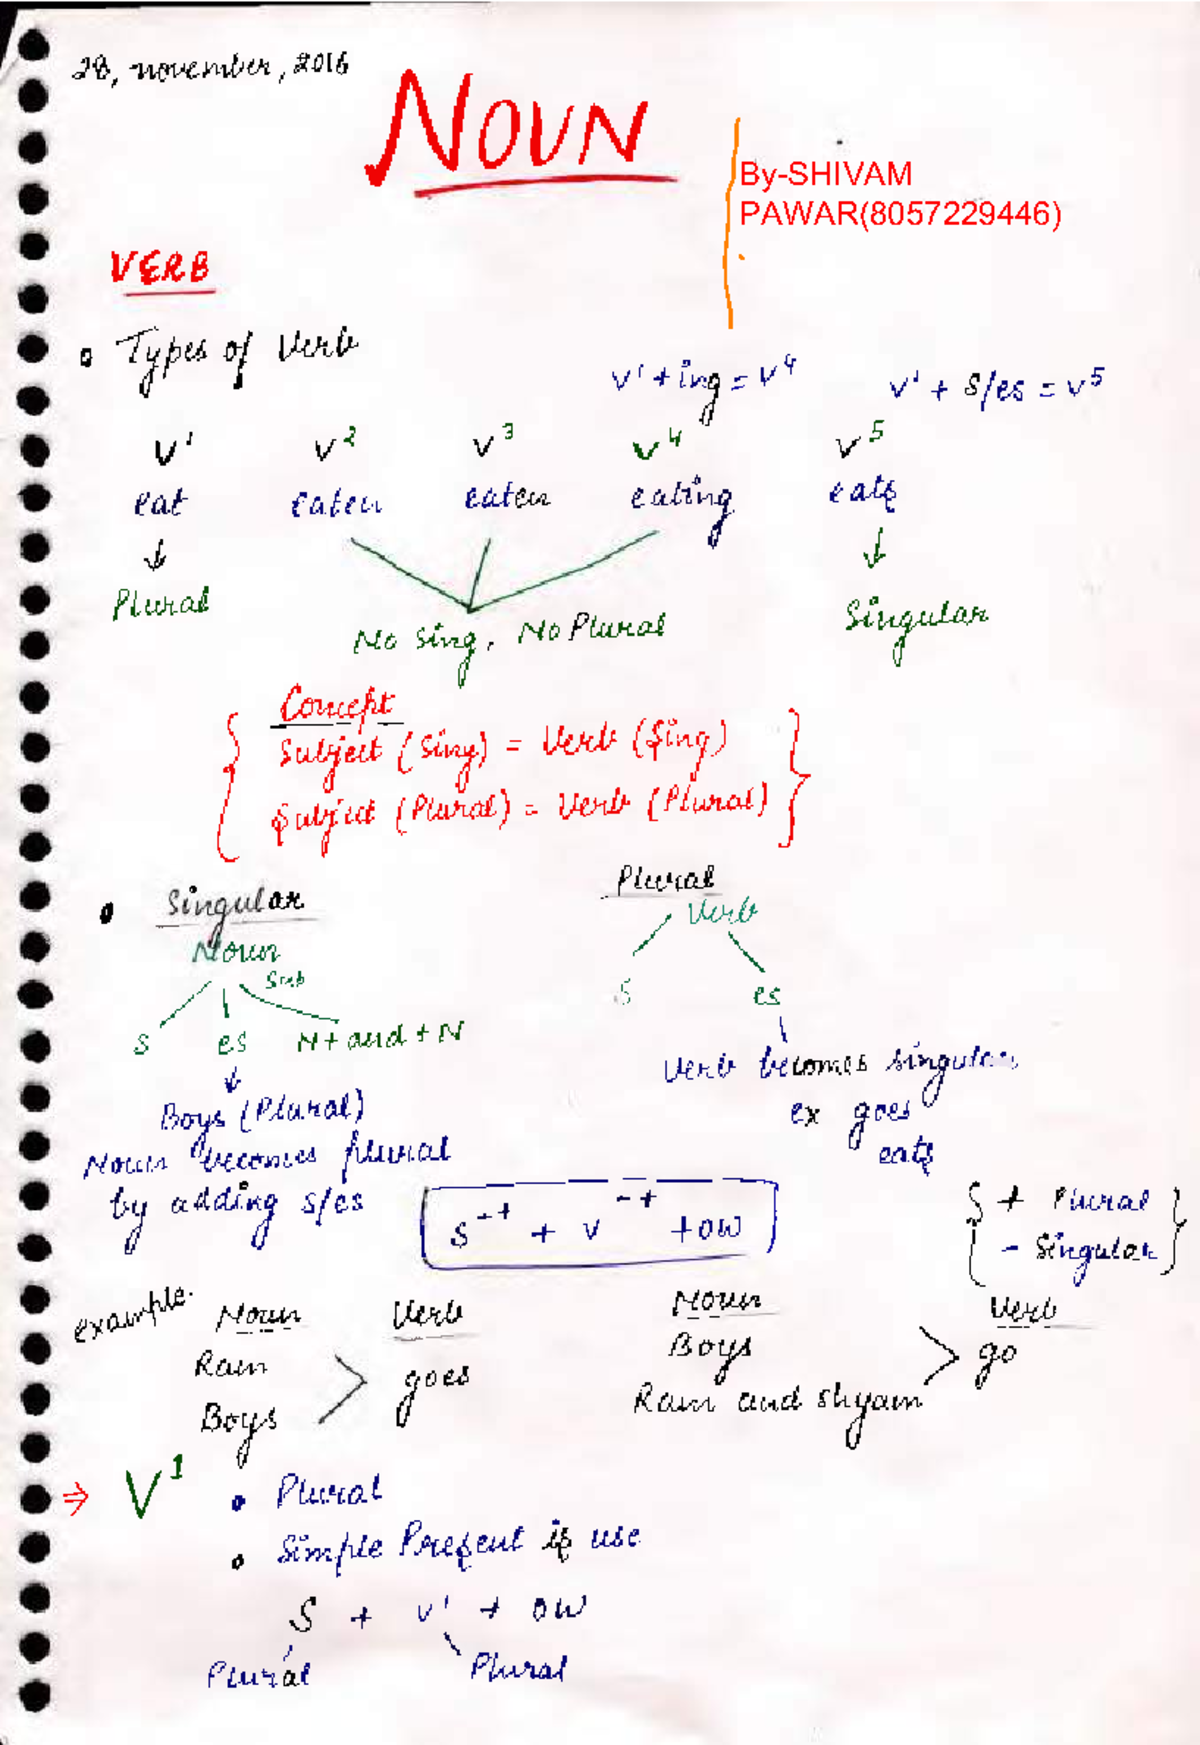 28, november, 2016
NOUN
By-SHIVAM
PAWAR(8057229446)
VERB
Types of Verb
V¹+ing = V⁴
V¹ + S/es = V⁵
V¹ V² V³ V⁴ V⁵
eat eaten eaten eating eats
Plural
No Sing, No Plural
Singular
Concept
Subject (Sing) = Verb (Sing)
Subject (Plural) = Verb (Plural)
Singular
Plural
Noun
Verb
Sub
S es N+and+N
S es
Boys (Plural)
Verb becomes singular
ex goes
eats
Noun becomes plural
by adding s/es
S⁻⁺ + V⁻⁺ + OW
+ Plural
- Singular
example.
Noun Verb Noun Verb
Ram
Boys
goes
Boys
Ram and shyam
go
⇒ V¹
Plural
Simple Present is use
S + V¹ + OW
Plural Plural